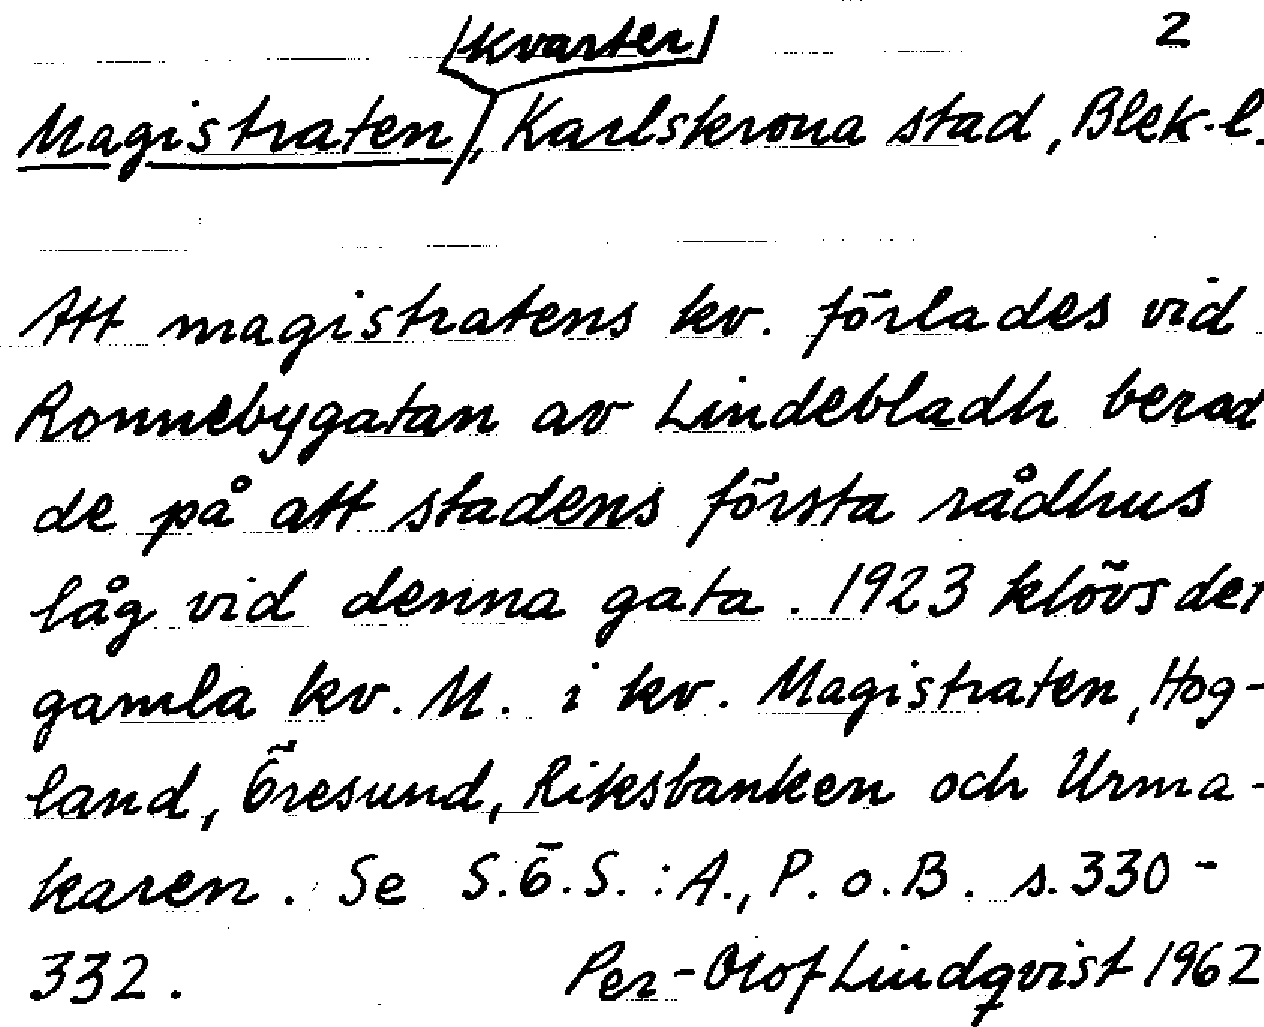 (kvarter) 2
Magistraten, Karlskrona stad, Blek.l.
Att magistratens kv. förlades vid
Ronnebygatan av Lindebladh berod
de på att stadens första rådhus
låg vid denna gata. 1923 klövs det
gamla kv. M. i kv. Magistraten, Hog-
land, Öresund, Riksbanken och Urma-
karen. Se S.Ö.S.: A., P. o. B. s. 330-
332. Per-Olof Lindqvist 1962